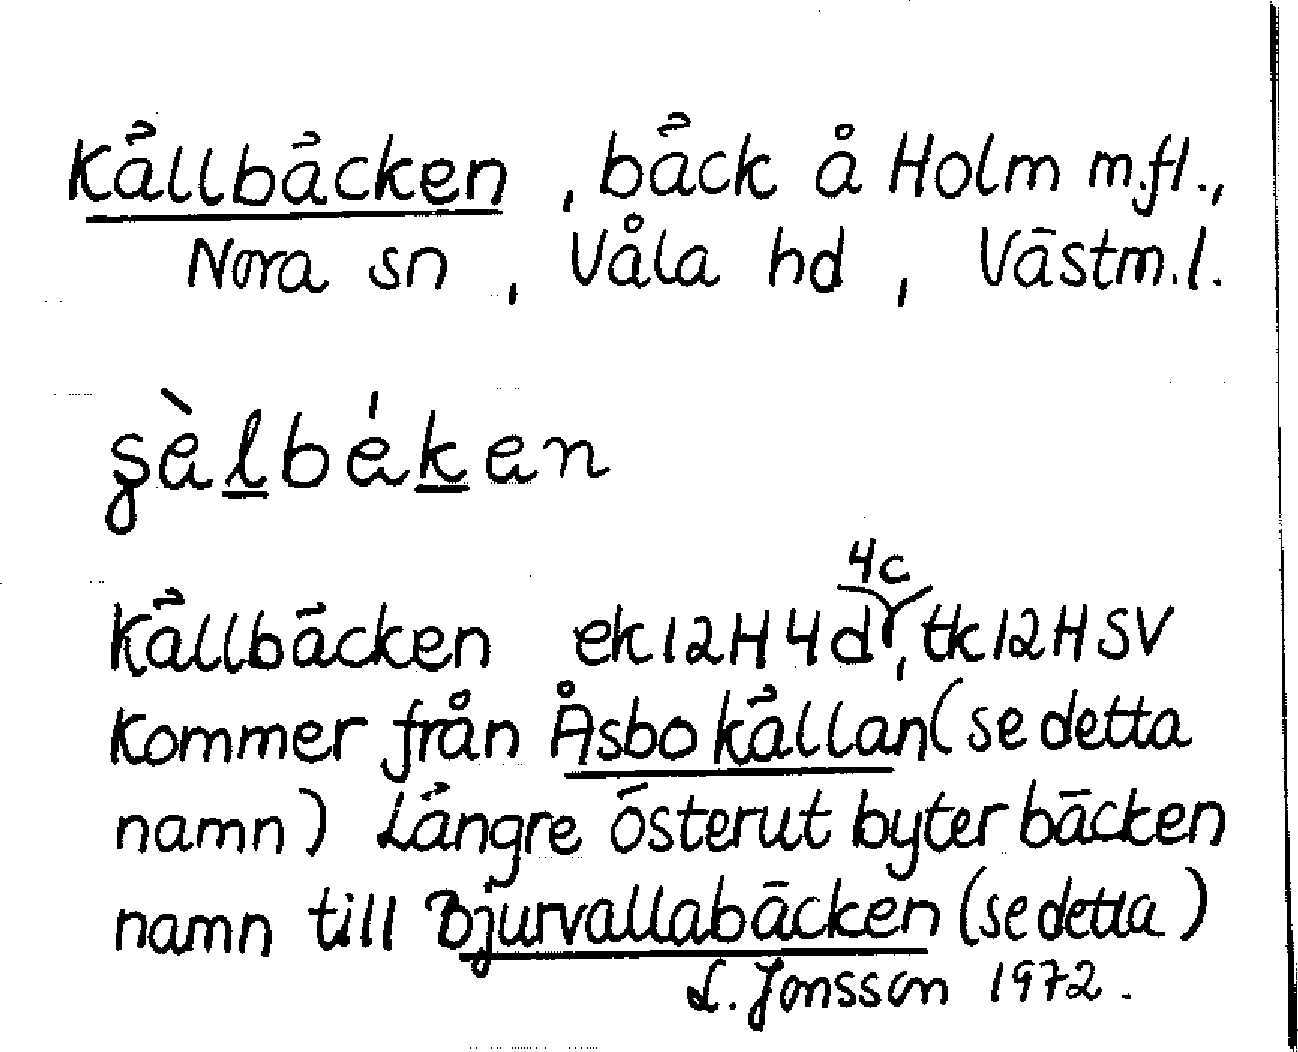 Källbäcken, bäck å Holm m.fl.,
Nora sn, Våla hd, Västm.l.
Källbäcken ek12H4d, tk12HSV
4c
kommer från Åsbokällan (se detta
namn) Längre österut byter bäcken
namn till Bjurvallabäcken (se detta)
L. Jonsson 1972.